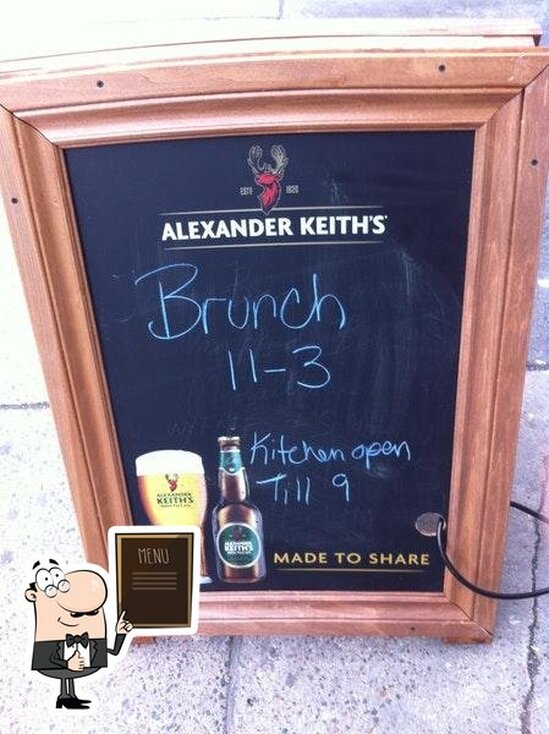 ESTD 1820
ALEXANDER KEITH'S
Brunch
11-3
Kitchen open
Till 9
ALEXANDER
KEITH'S
ALEXANDER
KEITH'S
MADE TO SHARE
MENU